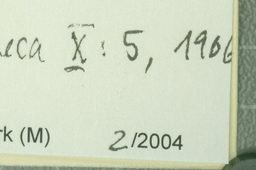 eca X: 5, 1906
rk (M) 2/2004